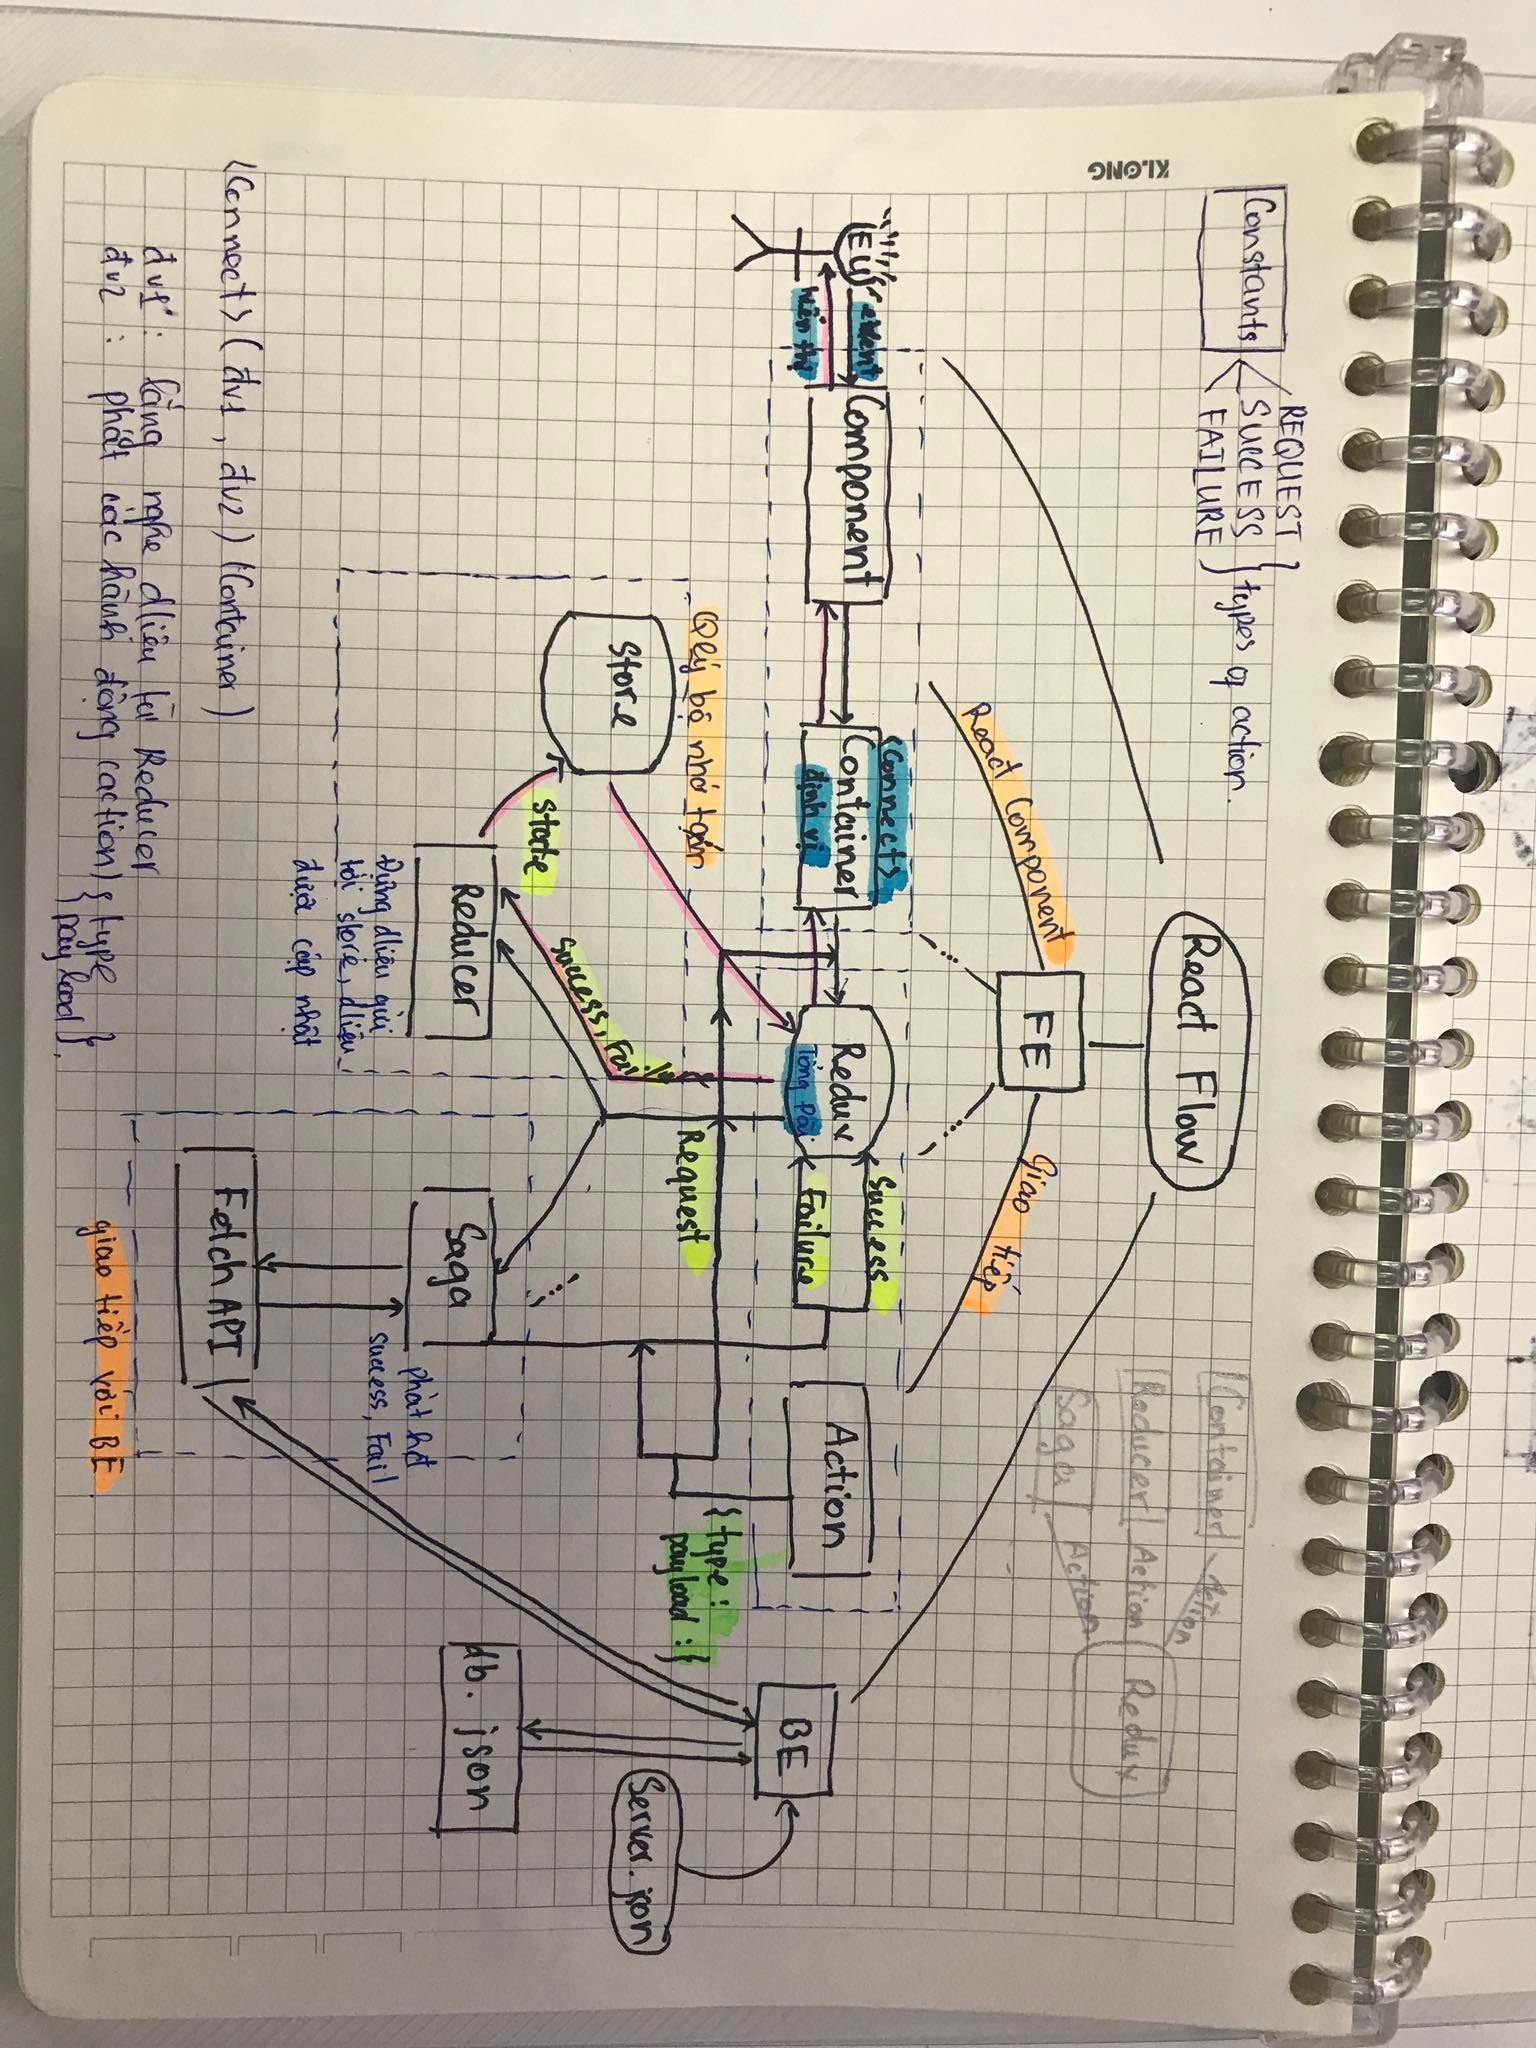 Constants
REQUEST
SUCCESS
FAILURE
types of action.
KLONG
React Flow
Container
Action
Reducer
Action
Redux
Saga
Action
FE
React Component
Giao tiếp
EU
event
hiển thị
Component
<Connect>
Container
định vị
Redux
Tổng Đài
Success
Failure
Action
BE
{ type :
payload : }
Request
Qlý bộ nhớ
Store
State
Success, Fail
Server.json
db. json
Reducer
Đựng dliệu gửi
tới store, dliệu
được cập nhật
Saga
phát hđ
success, Fail
Fetch API
giao tiếp với BE.
<Connect> (đv1, đv2) (Container)
đv1 : lắng nghe dliệu từ Reducer
đv2 : phát các hành động (action) { type
payload }.